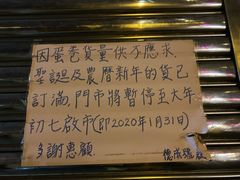 因蛋卷貨量供不應求
聖誕及農曆新年的貨已
訂滿,門市將暫停至大年
初七啟市(即2020年1月31日)
多謝惠顧 德成號啟